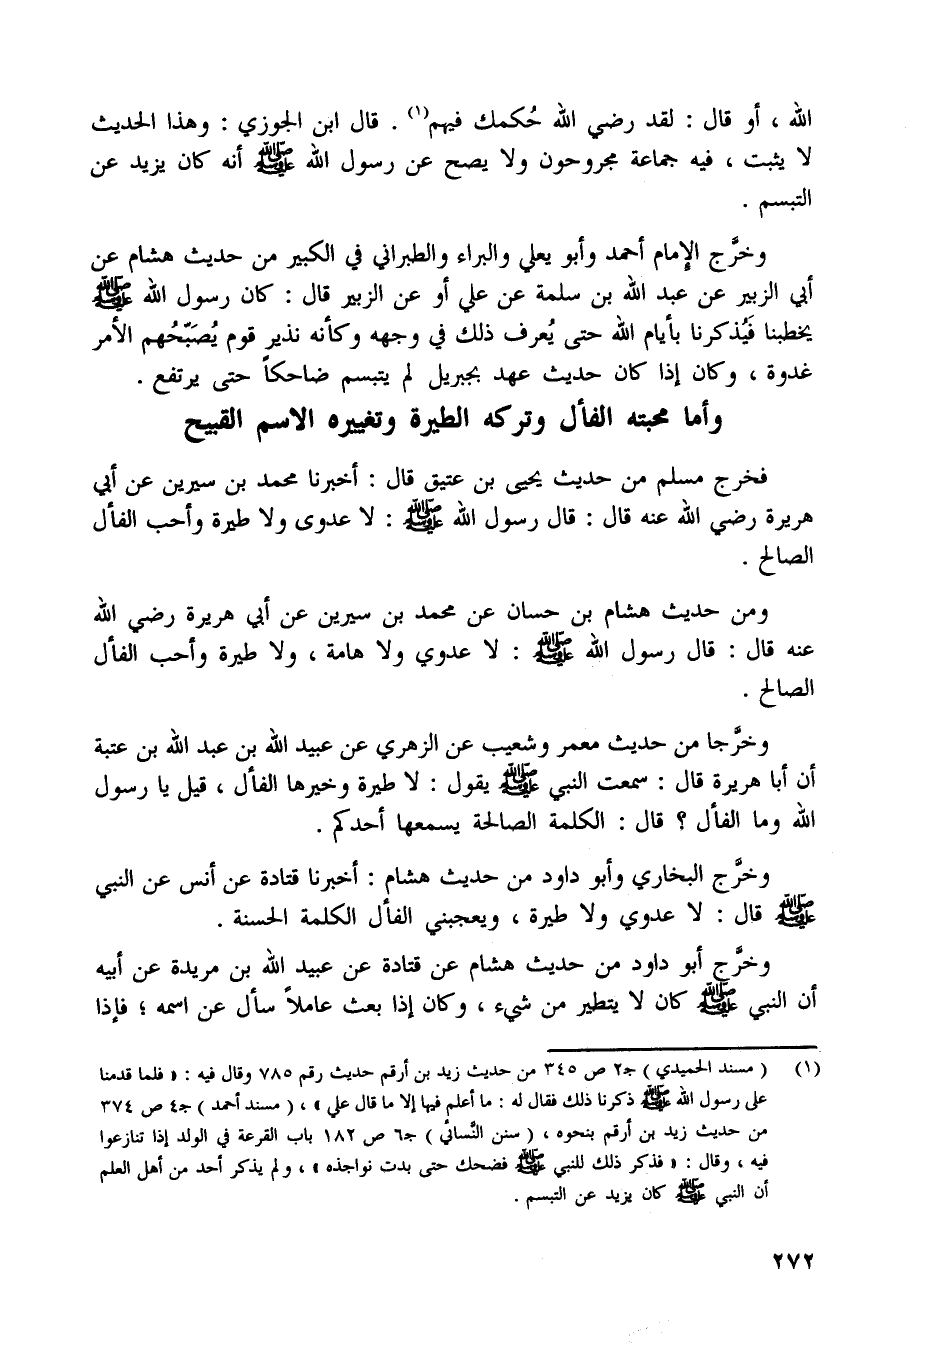 الله ، أو قال : لقد رضي الله حُكمك فيهم(١) . قال ابن الجوزي : وهذا الحديث
لا يثبت ، فيه جماعة مجروحون ولا يصح عن رسول الله ﷺ أنه كان يزيد عن
التبسم .
وخرَّج الإمام أحمد وأبو يعلي والبراء والطبراني في الكبير من حديث هشام عن
أبي الزبير عن عبد الله بن سلمة عن علي أو عن الزبير قال : كان رسول الله ﷺ
يخطبنا فَيُذكرنا بأيام الله حتى يُعرف ذلك في وجهه وكأنه نذير قوم يُصَبّحُهم الأمر
غدوة ، وكان إذا كان حديث عهد بجبريل لم يتبسم ضاحكاً حتى يرتفع .
وأما محبته الفأل وتركه الطيرة وتغييره الاسم القبيح
فخرج مسلم من حديث يحيى بن عتيق قال : أخبرنا محمد بن سيرين عن أبي
هريرة رضي الله عنه قال : قال رسول الله ﷺ : لا عدوى ولا طيرة وأحب الفأل
الصالح .
ومن حديث هشام بن حسان عن محمد بن سيرين عن أبي هريرة رضي الله
عنه قال : قال رسول الله ﷺ : لا عدوي ولا هامة ، ولا طيرة وأحب الفأل
الصالح .
وخرَّجا من حديث معمر وشعيب عن الزهري عن عبيد الله بن عبد الله بن عتبة
أن أبا هريرة قال : سمعت النبي ﷺ يقول : لا طيرة وخيرها الفأل ، قيل يا رسول
الله وما الفأل ؟ قال : الكلمة الصالحة يسمعها أحدكم .
وخرَّج البخاري وأبو داود من حديث هشام : أخبرنا قتادة عن أنس عن النبي
ﷺ قال : لا عدوي ولا طيرة ، ويعجبني الفأل الكلمة الحسنة .
وخرَّج أبو داود من حديث هشام عن قتادة عن عبيد الله بن مريدة عن أبيه
أن النبي ﷺ كان لا يتطير من شيء ، وكان إذا بعث عاملاً سأل عن اسمه ؛ فإذا
(١) ( مسند الحميدي ) جـ٢ ص ٣٤٥ من حديث زيد بن أرقم حديث رقم ٧٨٥ وقال فيه : « فلما قدمنا
على رسول الله ﷺ ذكرنا ذلك فقال له : ما أعلم فيها إلا ما قال علي » ، ( مسند أحمد ) جـ٤ ص ٣٧٤
من حديث زيد بن أرقم بنحوه ، ( سنن النَّسائي ) جـ٦ ص ١٨٢ باب القرعة في الولد إذا تنازعوا
فيه ، وقال : « فذكر ذلك للنبي ﷺ فضحك حتى بدت نواجذه » ، ولم يذكر أحد من أهل العلم
أن النبي ﷺ كان يزيد عن التبسم .
٢٧٢